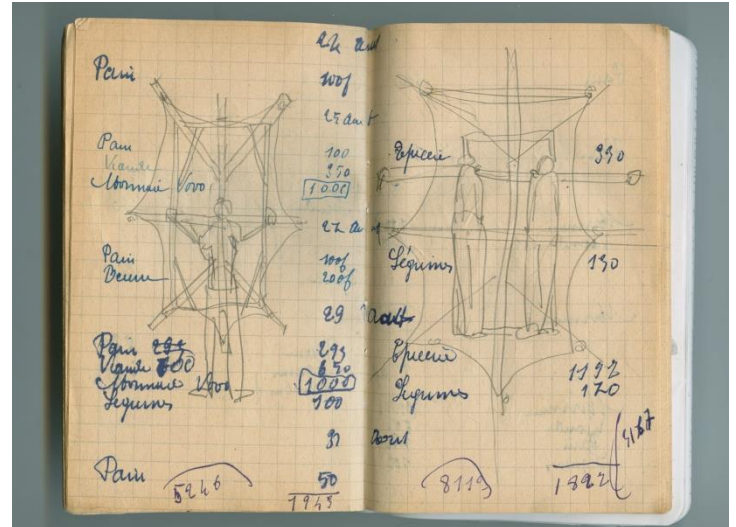 Août
Pain 100f
25 Août
Pain 100
Viande 350
Monnaie Vovo 1000
27 Août
Pain 100f
Beurre 200f
29 Août
Pain 293
Viande 650
Monnaie Vovo 1000
Légumes 100
31 Août
Pain 50
5246
1943
Epicerie
Légumes 130
Epicerie 1192
Légumes 120
8119